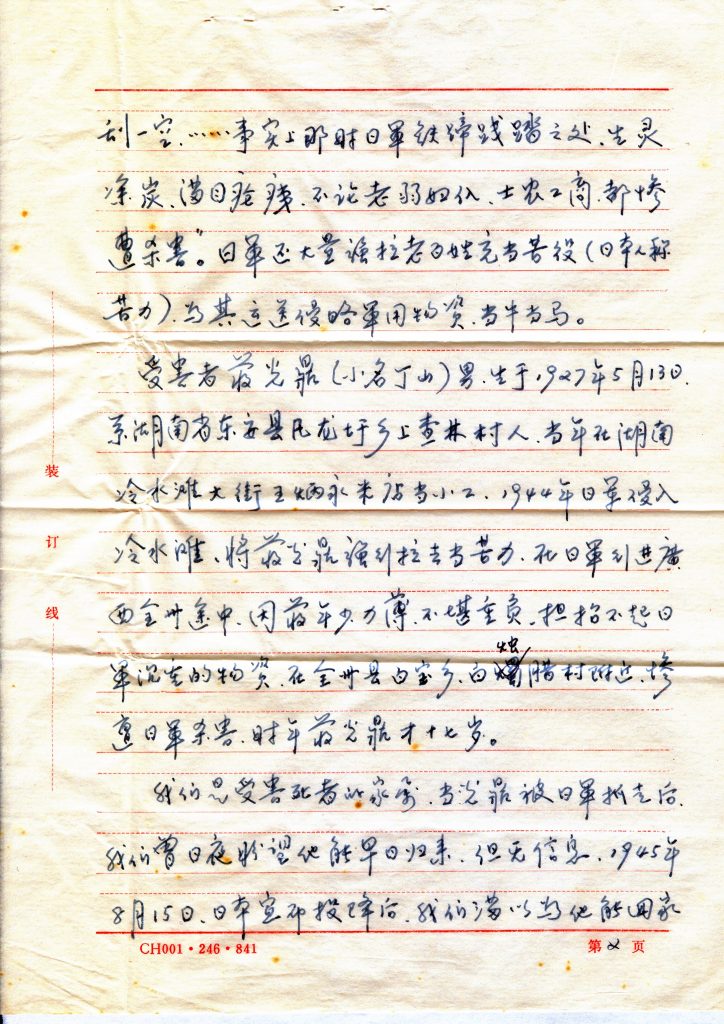 刮一空。……事实上那时日军铁蹄践踏之处、生灵
涂炭、满目疮痍、不论老弱妇幼、士农工商、都惨
遭杀害”。日军还大量强拉老百姓充当苦役(日本人称
苦力)、为其运送侵略军用物资、当牛当马。
受害者蒋光鼎(小名丁山)男、生于1927年5月13日、
系湖南省东安县凡龙圩乡上查林村人、当年在湖南
冷水滩大街王炳永米店当小工、1944年日军侵入
冷水滩、将蒋光鼎强行拉去当苦力、在日军行进廣
西全州途中、因蒋年少力薄、不堪重负、担抬不起日
军沉重的物资、在全州县白宝乡、白烛腊村附近、惨
遭日军杀害、时年蒋光鼎才十七岁。
我们是受害死者的家属、当光鼎被日军抓走后、
我们曾日夜盼望他能早日归来、但无信息、1945年
8月15日、日本宣布投降后、我们满以为他能回家
装
订
线
CH001·246·841
第2页